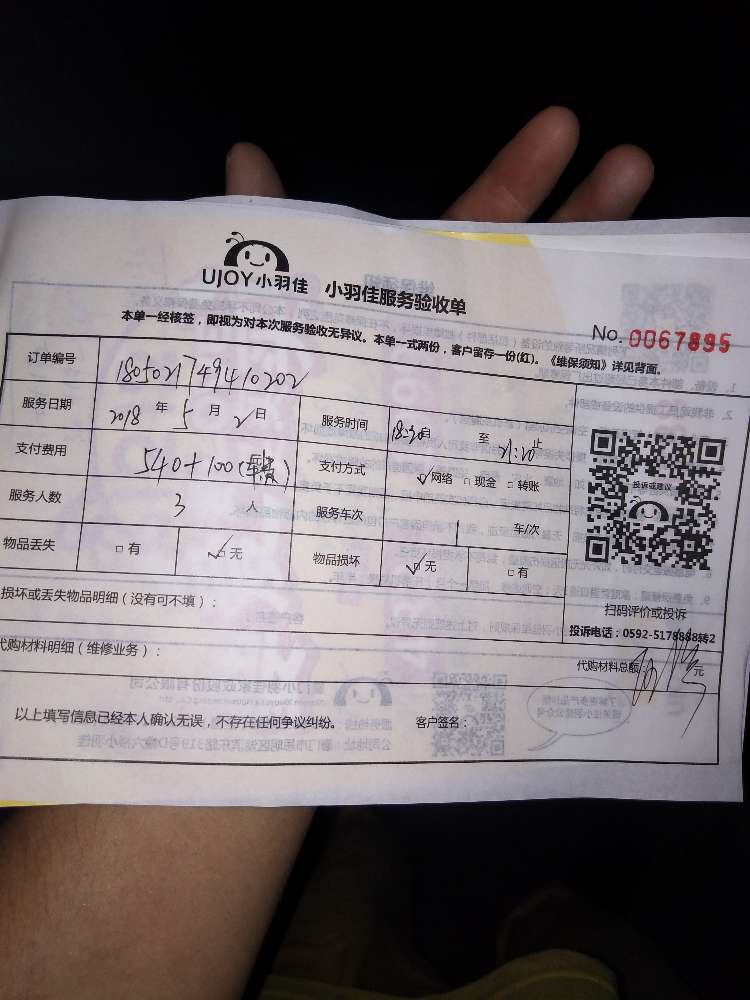 UJOY小羽佳 小羽佳服务验收单
本单一经核签，即视为对本次服务验收无异议。本单一式两份，客户留存一份(红)。《维保须知》详见背面。
No. 0067895
订单编号 1805021749410202
服务日期 2018 年 5 月 2 日 服务时间 18:30自 至 21:20止
支付费用 540+100 支付方式 ✓网络 □现金 □转账
服务人数 3 人 服务车次 1 车/次
物品丢失 □有 ✓无 物品损坏 ✓无 □有
投诉或建议
扫码评价或投诉
投诉电话：0592-5178888转2
损坏或丢失物品明细（没有可不填）：
代购材料明细（维修业务）：
代购材料总额： 元
以上填写信息已经本人确认无误，不存在任何争议纠纷。 客户签名：